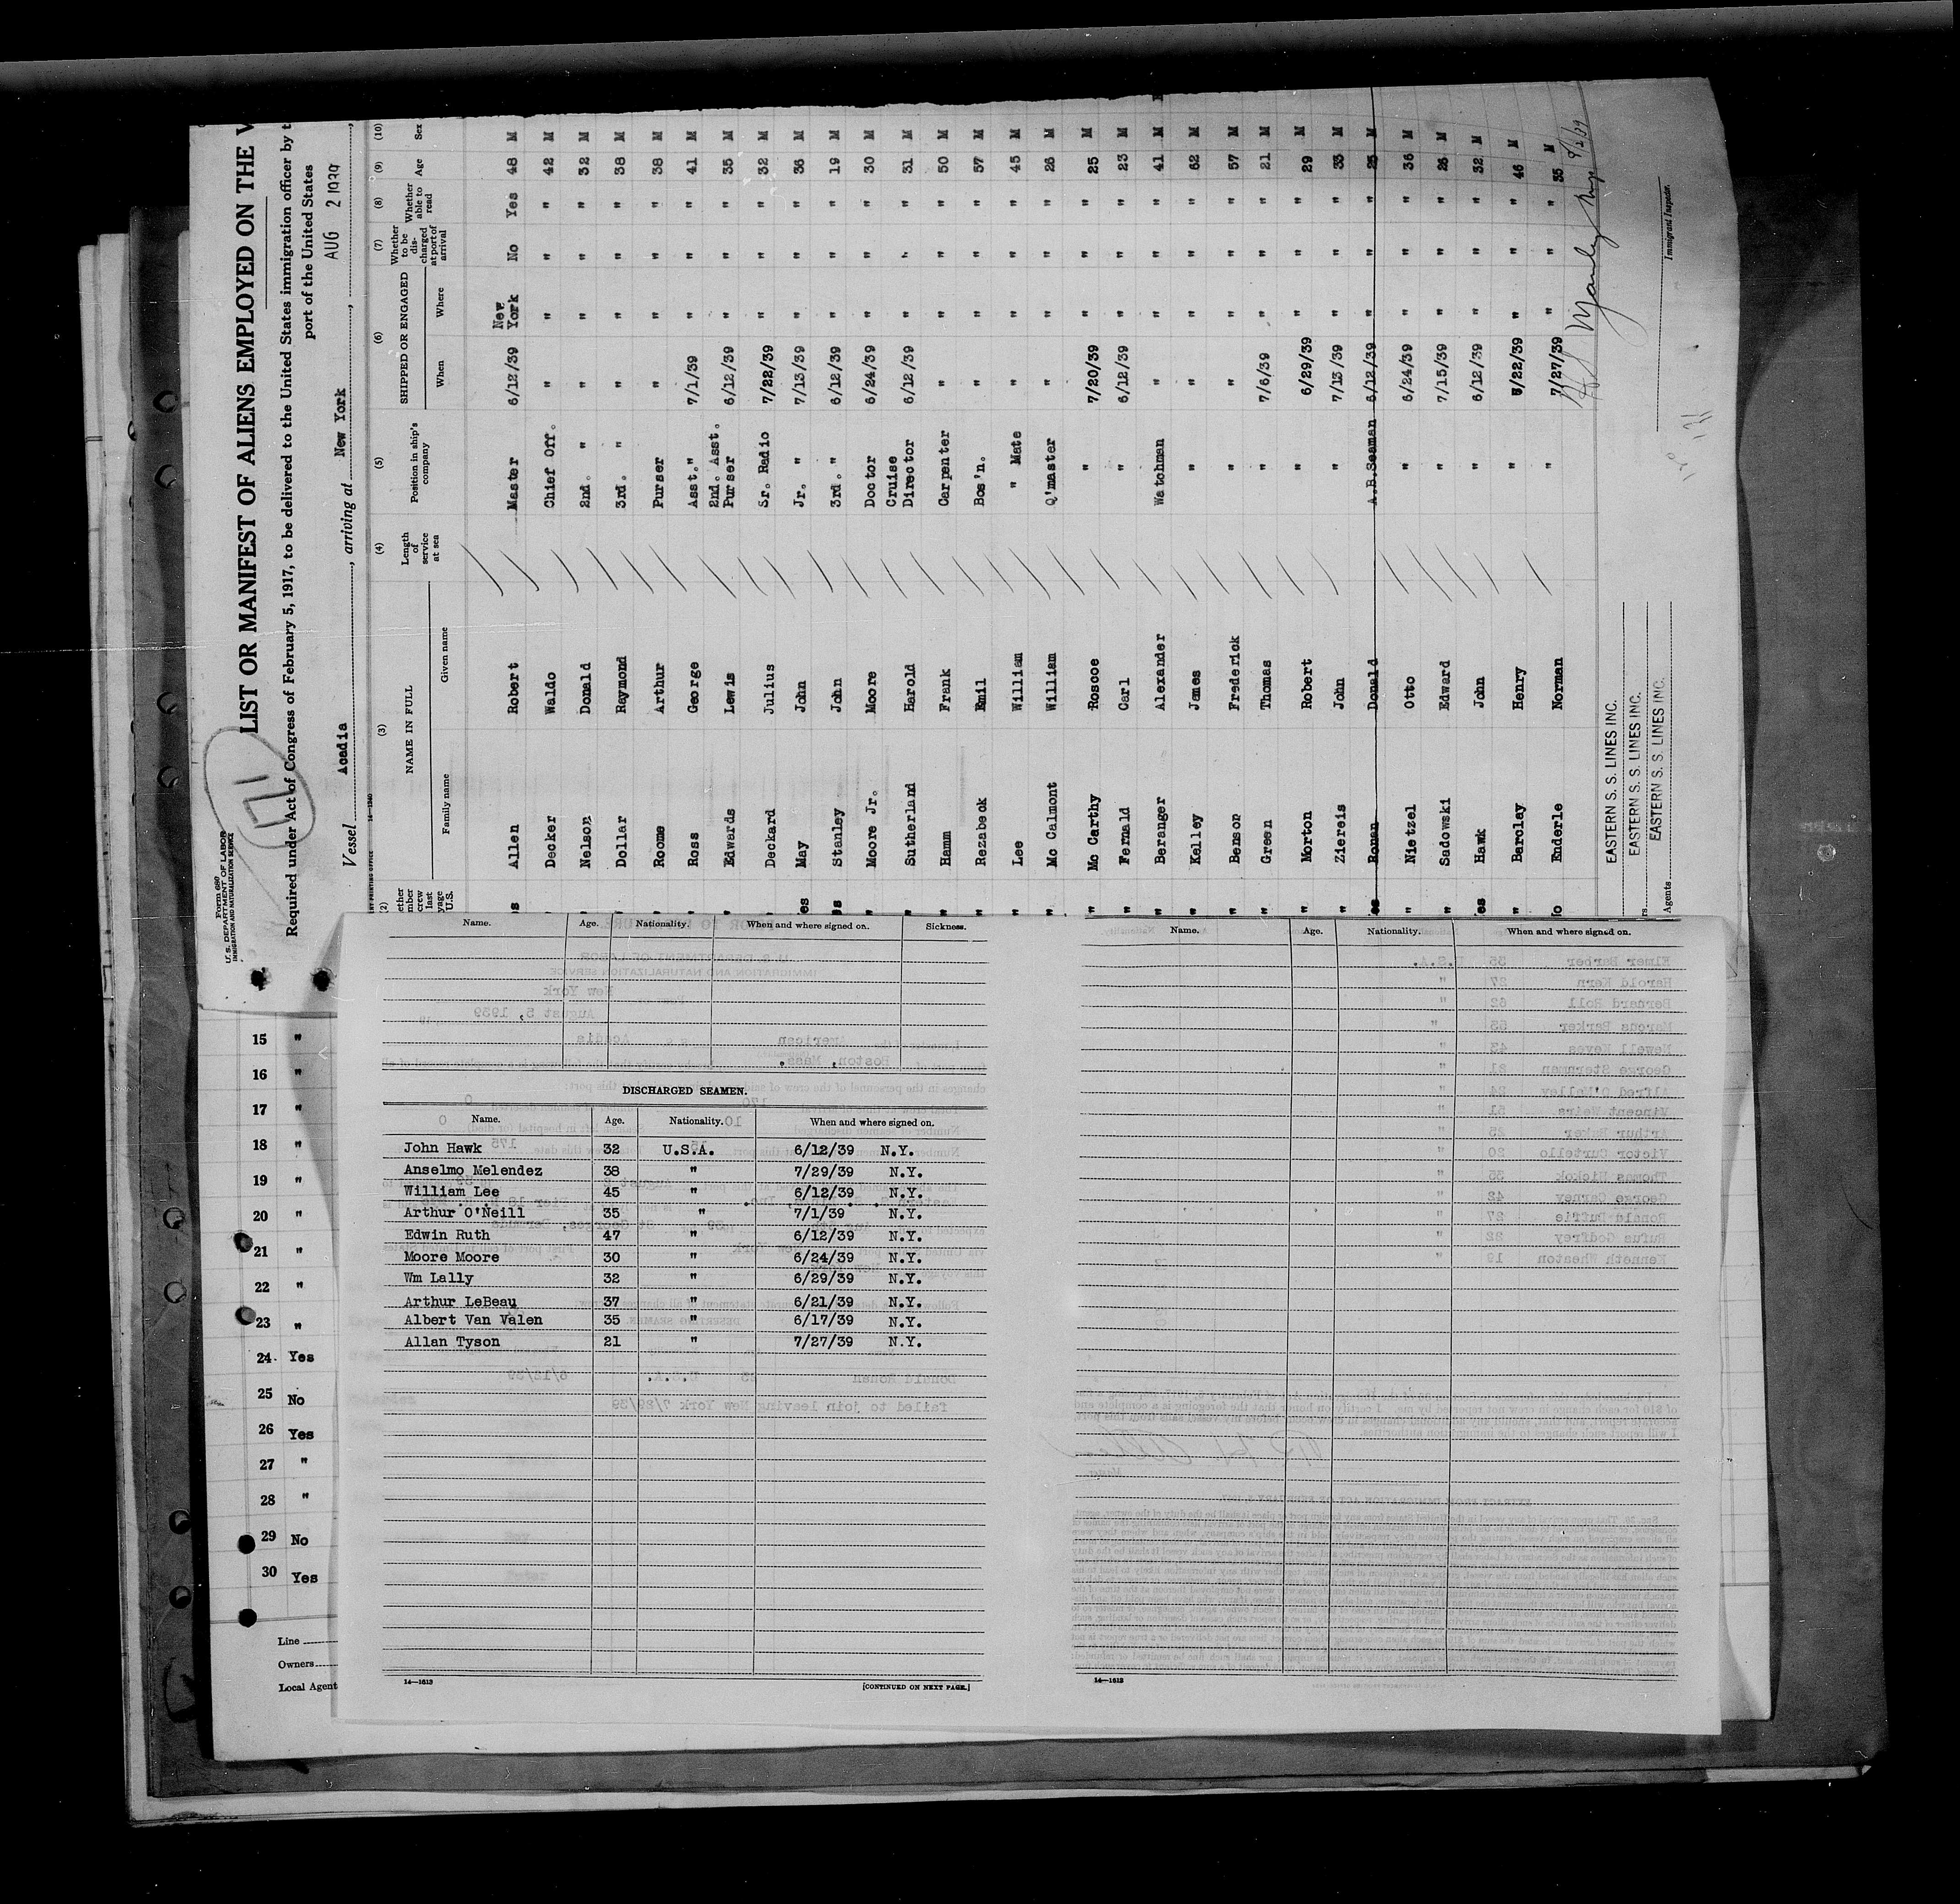 Form 680
U. S. DEPARTMENT OF LABOR
IMMIGRATION AND NATURALIZATION SERVICE
LIST OR MANIFEST OF ALIENS EMPLOYED ON THE V
Required under Act of Congress of February 5, 1917, to be delivered to the United States immigration officer by t
port of the United States
Vessel Acadia, arriving at New York, AUG 2 1939,
(2) (3) (4) (5) (6) (7) (8) (9) (10)
NAME IN FULL Length of service at sea Position in ship's company SHIPPED OR ENGAGED Whether to be discharged at port of arrival Whether able to read Age Sex
Family name Given name When Where
Allen Robert Master 6/12/39 New York No Yes 48 M
Decker Waldo Chief Off. " " " " 42 M
Nelson Donald 2nd. " " " " " 32 M
Dollar Raymond 3rd. " " " " " 38 M
Roome Arthur Purser " " " " 38 M
Ross George Asst." 7/1/39 " " " 41 M
Edwards Lewis 2nd. Asst. Purser 6/12/39 " " " 35 M
Deckard Julius Sr. Radio 7/22/39 " " " 32 M
May John Jr. " 7/13/39 " " " 36 M
Stanley John 3rd. " 6/12/39 " " " 19 M
Moore Jr. Moore Doctor 6/24/39 " " " 30 M
Sutherland Harold Cruise Director 6/12/39 " " " 31 M
Hamm Frank Carpenter " " " " 50 M
Rezabeck Emil Bos'n. " " " " 57 M
Lee William " Mate " " " " 45 M
Mc Calmont William Q'master " " " " 26 M
Mc Carthy Roscoe " 7/20/39 " " " 25 M
Fernald Carl " 6/12/39 " " " 23 M
Beranger Alexander Watchman " " " " 41 M
Kelley James " " " " " 62 M
Benson Frederick " " " " " 57 M
Green Thomas " 7/6/39 " " " 21 M
Morton Robert " 6/29/39 " " " 29 M
Ziereis John " 7/13/39 " " " 33 M
Ronan Donald A.B.Seaman 6/12/39 " " " 25 M
Nietzel Otto " 6/24/39 " " " 36 M
Sadowski Edward " 7/15/39 " " " 26 M
Hawk John " 6/12/39 " " " 32 M
Barclay Henry " 5/22/39 " " " 46 M
Enderle Norman " 7/27/39 " " " 35 M
EASTERN S. S. LINES INC.
EASTERN S. S. LINES INC.
Agents EASTERN S. S. LINES INC.
Immigrant Inspector.
15 "
16 "
17 "
18 "
19 "
20 "
21 "
22 "
23 "
24 Yes
25 No
26 Yes
27 "
28 "
29 No
30 Yes
Line
Owners
Local Agent
Name. Age. Nationality. When and where signed on. Sickness.
DISCHARGED SEAMEN.
Name. Age. Nationality. When and where signed on.
John Hawk 32 U.S.A. 6/12/39 N.Y.
Anselmo Melendez 38 " 7/29/39 N.Y.
William Lee 45 " 6/12/39 N.Y.
Arthur O'Neill 35 " 7/1/39 N.Y.
Edwin Ruth 47 " 6/12/39 N.Y.
Moore Moore 30 " 6/24/39 N.Y.
Wm Lally 32 " 6/29/39 N.Y.
Arthur LeBeau 37 " 6/21/39 N.Y.
Albert Van Valen 35 " 6/17/39 N.Y.
Allan Tyson 21 " 7/27/39 N.Y.
14—1613 [CONTINUED ON NEXT PAGE.]
Name. Age. Nationality. When and where signed on.
14—1613